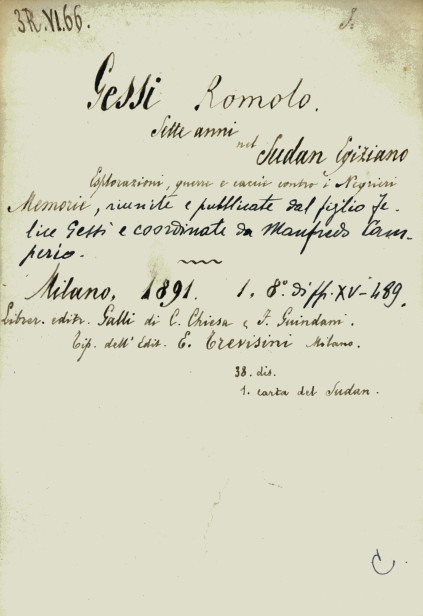 3R.VI.66.
Gessi Romolo.
Sette anni
nel
Sudan Egiziano
Esplorazioni, guerre e caccie contro i Negrieri
Memorie, riunite e pubblicate dal figlio Fe-
lice Gessi e coordinate da Manfredo Cam-
perio.
Milano, 1891. 1. 8° diff. XV-489.
Librer. editr. Galli di C. Chiesa e F. Guindani.
Tip. dell' Edit. E. Trevisini Milano.
38. dis.
1. carta del Sudan.
C